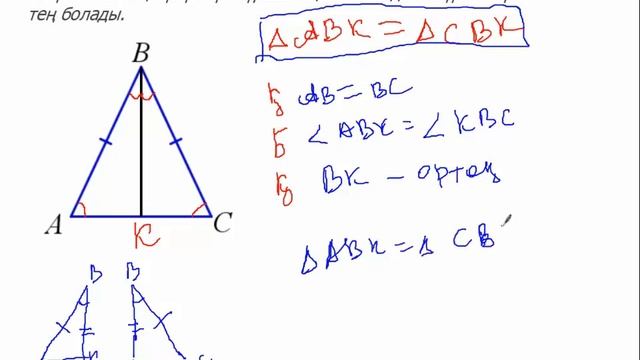 тең болады.
△ABK = △CBK
B
Қ AB = BC
Б ∠ABK = ∠KBC
Қ BK – ортақ
A K C
△ABK = △CB
B B